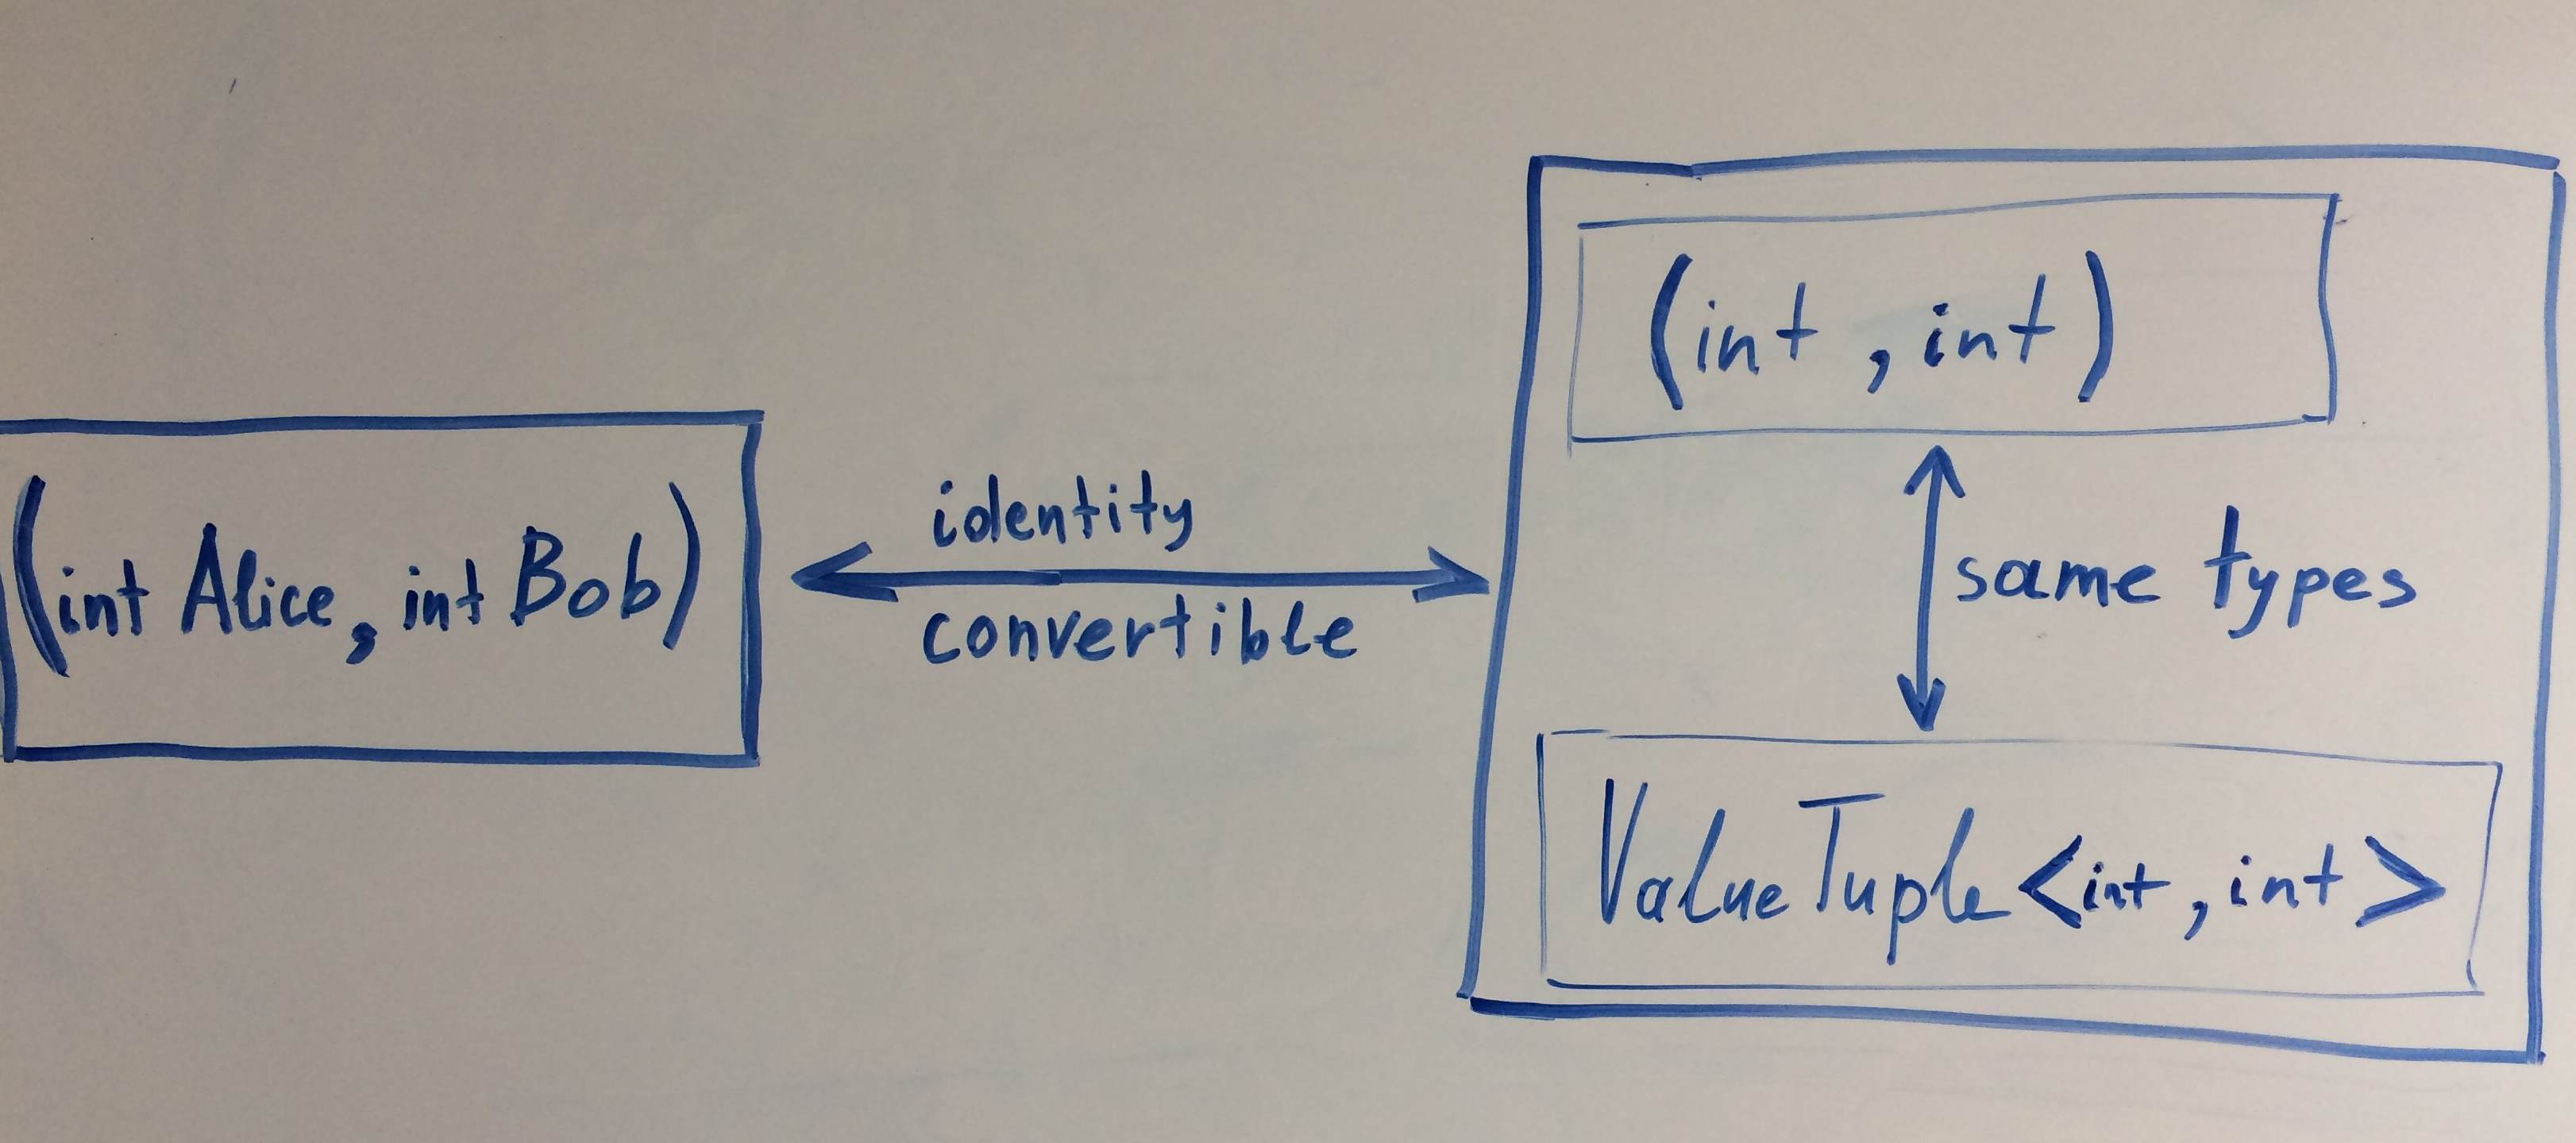 (int Alice, int Bob)
identity
convertible
(int , int)
same types
ValueTuple <int , int>